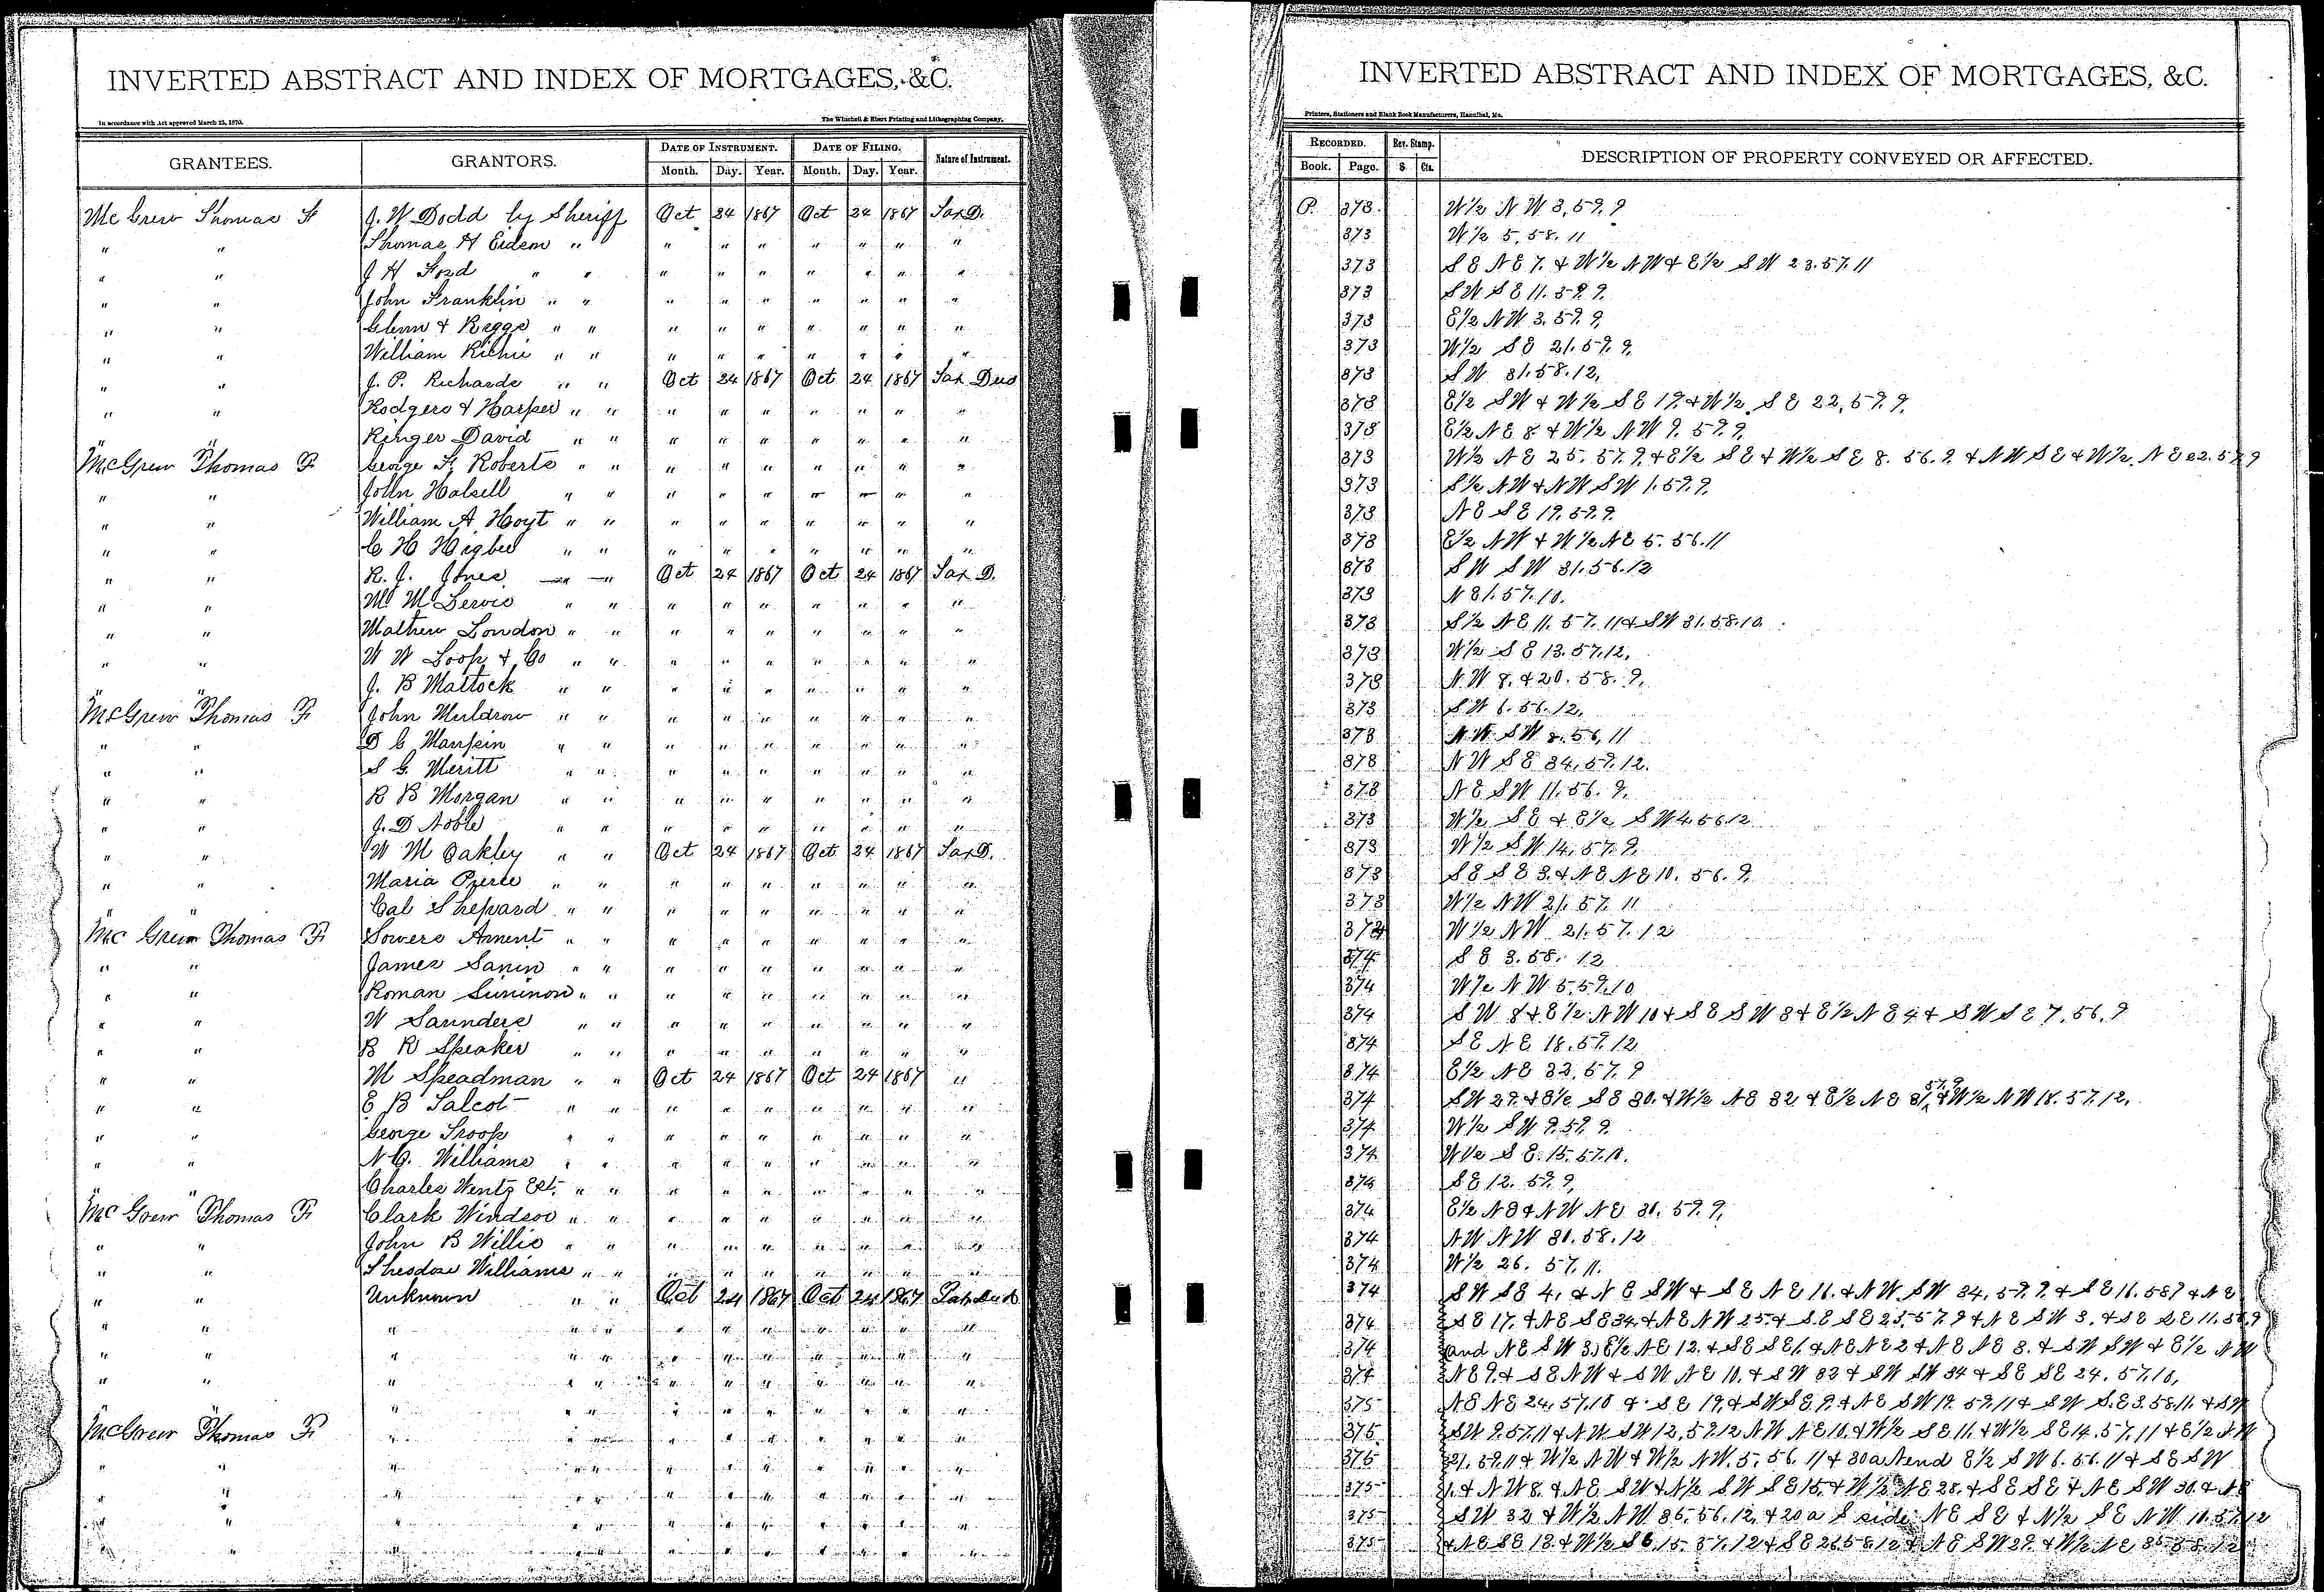 INVERTED ABSTRACT AND INDEX OF MORTGAGES, &C.
In accordance with Act approved March 25, 1870. The Winchell & Ebert Printing and Lithographing Company,
GRANTEES. GRANTORS. DATE OF INSTRUMENT. DATE OF FILING. Nature of Instrument.
Month. Day. Year. Month. Day. Year.
Mc Grew Thomas F J. W Dodd by Sheriff Oct 24 1867 Oct 24 1867 Tax D.
" " Thomas H " " " " " " " "
" " J H Ford " " " " " " " " "
" " John Franklin " " " " " " " " "
" " Glenn & Riggs " " " " " " " " "
" " William Richie " " " " " " " " "
" " J. P. Richards " " Oct 24 1867 Oct 24 1867 Tax Deed
" " Rodgers & Harper " " " " " " " " "
" " Ringer David " " " " " " " " "
McGrew Thomas F George F. Roberts " " " " " " " " "
" " John Halsell " " " " " " " " "
" " William A Hoyt " " " " " " " " "
" " C H Higbee " " " " " " " " "
" " R. J. Jones " " Oct 24 1867 Oct 24 1867 Tax D.
" " " " " " " " " " "
" " Mathew London " " " " " " " " "
" " W W Loop & Co " " " " " " " " "
" " J. B Mattock " " " " " " " " "
McGrew Thomas F John Muldrow " " " " " " " " "
" " D C Maupin " " " " " " " " "
" " S G. Meritt " " " " " " " " "
" " R B Morgan " " " " " " " " "
" " J. D Noble " " " " " " " " "
" " W M Oakley " " Oct 24 1867 Oct 24 1867 Tax D.
" " Maria Pierce " " " " " " " " "
" " Cal Shepard " " " " " " " " "
Mc Grew Thomas F Sowers Ament " " " " " " " " "
" " James " " " " " " " " "
" " Roman " " " " " " " " "
" " W Saunders " " " " " " " " "
" " B R Speaker " " " " " " " " "
" " M Speadman " " Oct 24 1867 Oct 24 1867 "
" " E B Talcot " " " " " " " " "
" " George Troop " " " " " " " " "
" " N. G. Williams " " " " " " " " "
" " Charles Wentz Est. " " " " " " " " "
Mc Grew Thomas F Clark Windsor " " " " " " " " "
" " John B Willis " " " " " " " " "
" " Theodore Williams " " " " " " " " "
" " Unknown " " Oct 24 1867 Oct 24 1867 Tax Deed
" " " " " " " " " " " "
" " " " " " " " " " " "
" " " " " " " " " " " "
" " " " " " " " " " " "
McGrew Thomas F " " " " " " " " " "
" " " " " " " " " " " "
" " " " " " " " " " " "
" " " " " " " " " " " "
" " " " " " " " " " "
INVERTED ABSTRACT AND INDEX OF MORTGAGES, &C.
Printers, Stationers and Blank Book Manufacturers, Hannibal, Mo.
RECORDED. Rev. Stamp. DESCRIPTION OF PROPERTY CONVEYED OR AFFECTED.
Book. Page. $ Cts.
P. 373 W½ N W 3, 57. 9
373 W½ 5, 58. 11
373 S E N E 7. & W½ N W & E½ S W 23. 57. 11
373 S W S E 11. 57. 9.
373 E½ N W 3. 57. 9,
373 W½ S E 21. 57. 9,
373 S W 31. 58. 12,
373 E½ S W & W½ S E 19. & W½ S E 22, 57. 9,
373 E½ N E 8 & W½ N W 9. 57. 9,
373 W½ N E 25. 57. 9. & E½ S E & W½ S E 8. 56. 9. & N W S E & W½ N E 22. 57. 9
373 S½ N W & N W S W 1. 57. 9,
373 N E S E 19. 57. 9.
373 E½ N W & W½ N E 5. 56. 11
373 S W S W 31. 56. 12
373 N 31. 57. 10.
373 S½ N E 11. 57. 11 & S W 31. 58. 10.
373 W½ S E 13. 57. 12,
373 N. W 8. & 20. 58. 9.
373 S W 6. 56. 12,
373 N. W. S W 8. 56, 11
373 N W S E 34, 57. 12.
373 N E S W 11. 56. 9.
373 W½ S E & E½ S W 4. 56 12
373 W½ S W 14, 57. 9.
373 S E S E 3. & N E N E 10. 56. 9,
373 W½ N W 21. 57. 11
374 W½ N W 21. 57. 12
374 S E 3. 58. 12
374 W½ N W 5. 57. 10
374 S W 8 & E½ N W 10 & S E S W 8 & E½ N E 4 & S W S E 7. 56. 9
374 S E N E 18. 57. 12
374 E½ N E 32, 57. 9
374 S W 29. & E½ S E 30. & W½ N E 32 & E½ N E 31 57. 9 & W½ N W 18. 57. 12.
374 W½ S W 9. 57. 9.
374 W½ S E. 15. 57. 11.
374 S E 12. 57. 9,
374 E½ N E & N W N E 30. 57. 9,
374 N W N W 30. 58. 12
374 W½ 26. 57. 11.
374 S W S E 4, & N E S W & S E N E 16. & N W S W 34, 57. 9. & S E 16. 58 9 & N E
374 S E 17. & N E S E 34 & N E N W 25 & S. E S E 25, 57. 9 & N E S W 3. & S E S E 11. 56. 9
374 and N E S W 3. E½ N E 12. & S E S E 1. & N E N E 2 & N E N E 8. & S W S W & E½ N W
374 N E 9. & S E N W & S W N E 10. & S W 32 & S W S W 34 & S E S E 24. 57. 10,
375 N E N E 24. 57. 10 & S E 19. & S W S E 9. & N E S W 17. 57. 11 & S W S. E 3. 58. 11. & S W
375 S W 9. 57. 11 & N W S W 12, 57. 12 N W N E 10. & W½ S E 11. & W½ S E 14. 57, 11 & E½ S W
375 31. 57. 11 & W½ N W & W½ N W. 5. 56. 11 & 30 a N end E½ S W 6. 56. 11 & S E S W
375 1. & N W 8. & N E S W & N½ S W S E 15. & W½ N E 28. & S E S E & N E S W 30. & N E
375 S W 32 & W½ N W 36. 56. 12. & 20 a S side N E S E & N½ S E N W 11. 57. 12
375 & N E S E 13. & W½ S E. 15. 57. 12 & S E 26. 58 12 & N E S W 29. & W½ N E 35. 58. 12